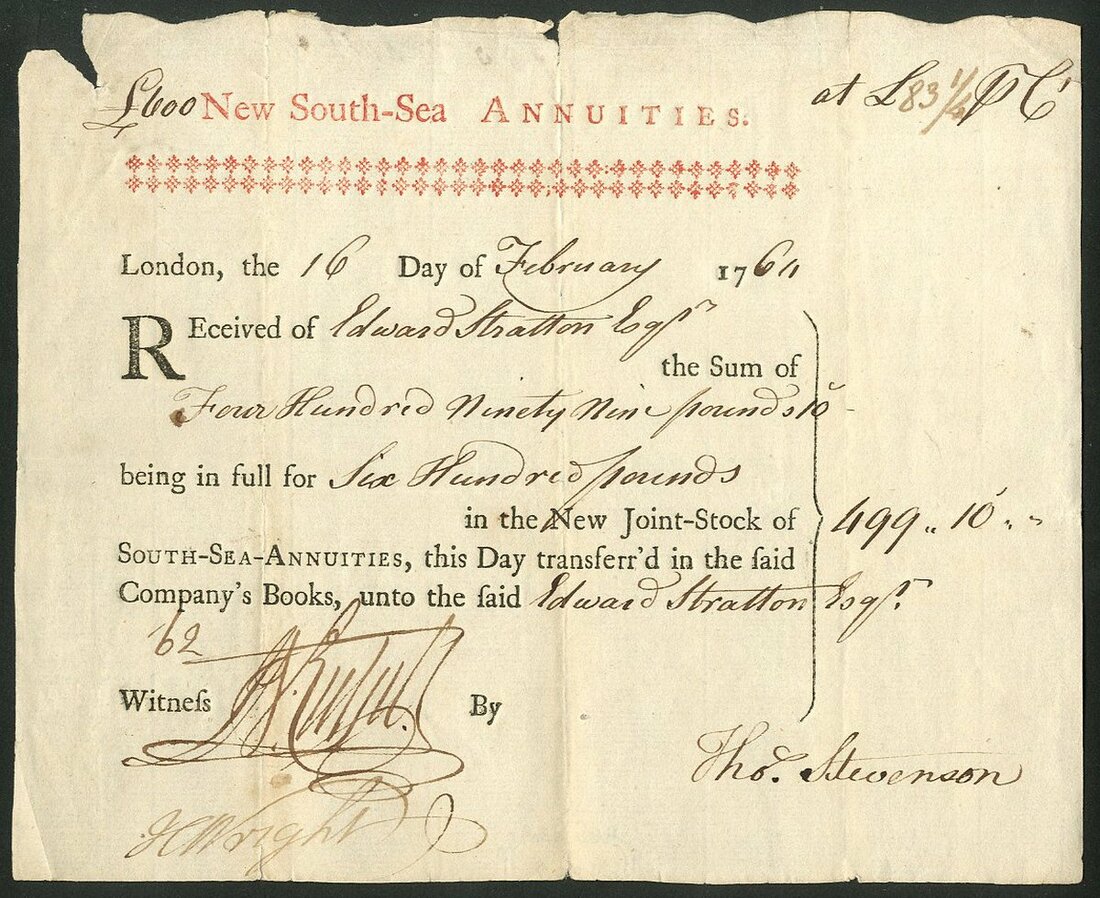 £600 New South-Sea ANNUITIES. at £83 1/4 ⅌ Ct
London, the 16 Day of February 176
REceived of Edward Stratton Esqr
the Sum of
Four Hundred Ninety Nine pounds 10
being in full for Six Hundred pounds
in the New Joint-Stock of
499 .. 10 .. -
SOUTH-SEA-ANNUITIES, this Day transferr'd in the ſaid
Company's Books, unto the ſaid Edward Stratton Esqr.
62
Witneſs By
Thos. Stevenson
HWright